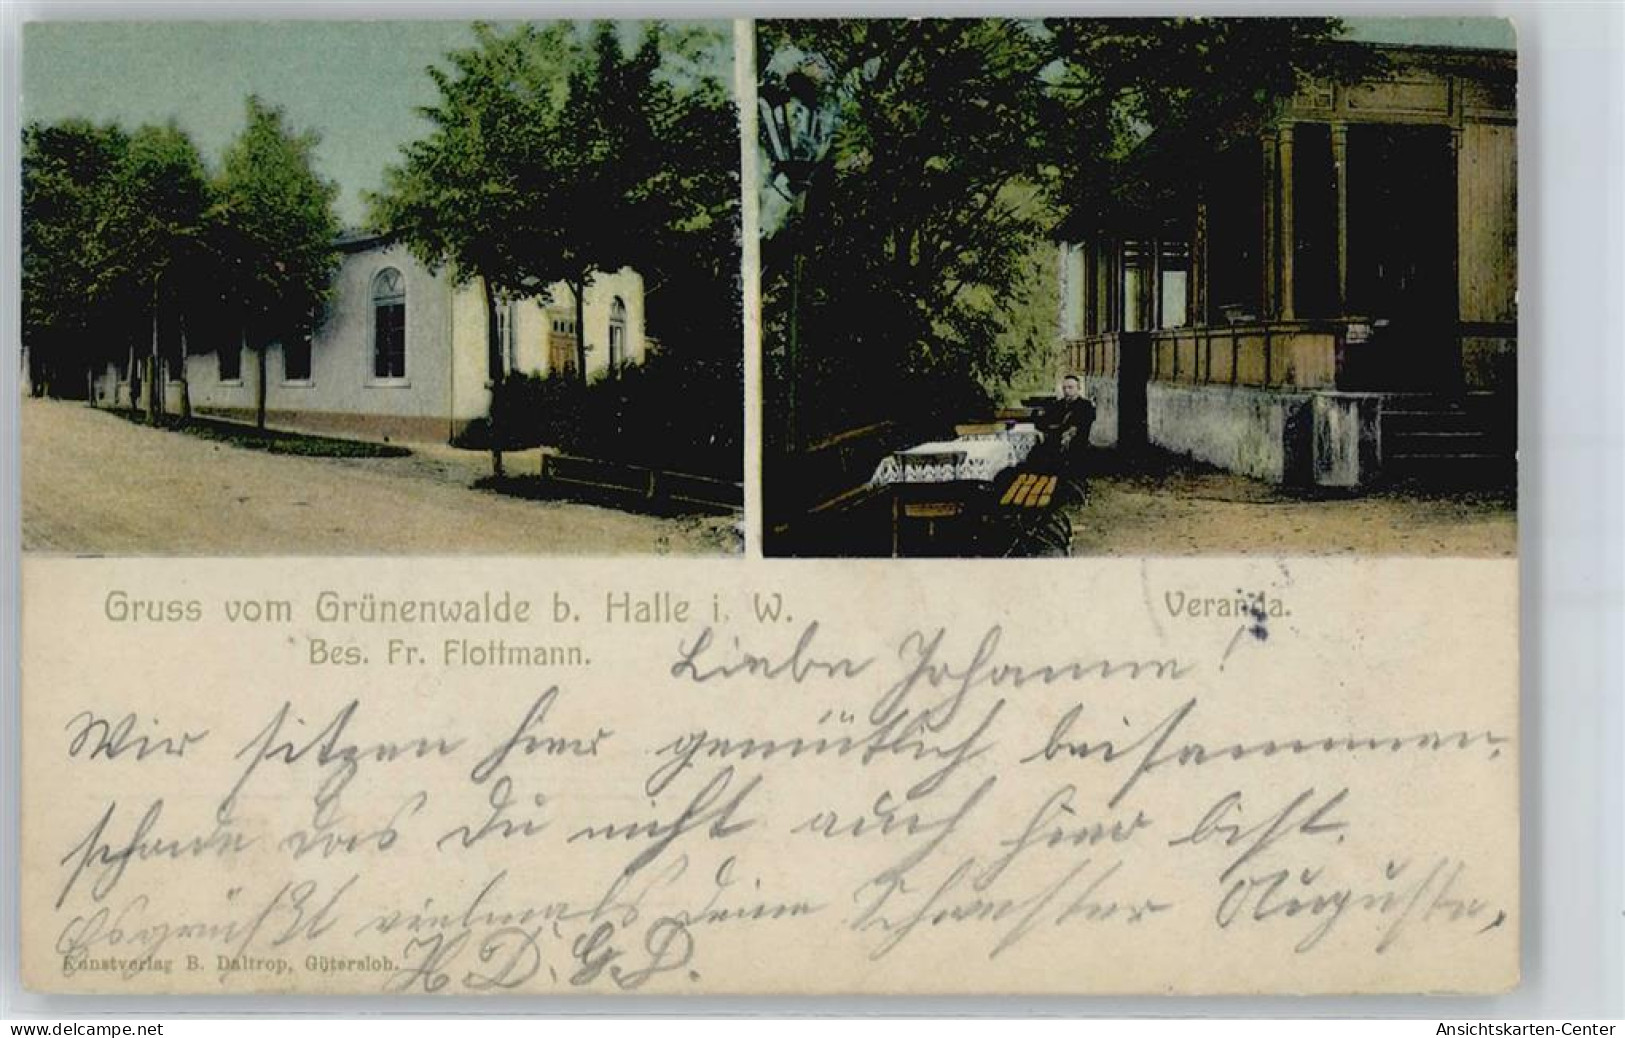 Gruss vom Grünenwalde b. Halle i. W.
Bes. Fr. Flottmann.
Veranda.
Liebe Johanne!
Wir sitzen hier gemütlich beisammen,
schade das Du nicht auch hier bist.
Es grüßt vielmals Deine Schwester Auguste,
H. D. G. D.
Kunstverlag B. Daltrop, Gütersloh.
www.delcampe.net
Ansichtskarten-Center